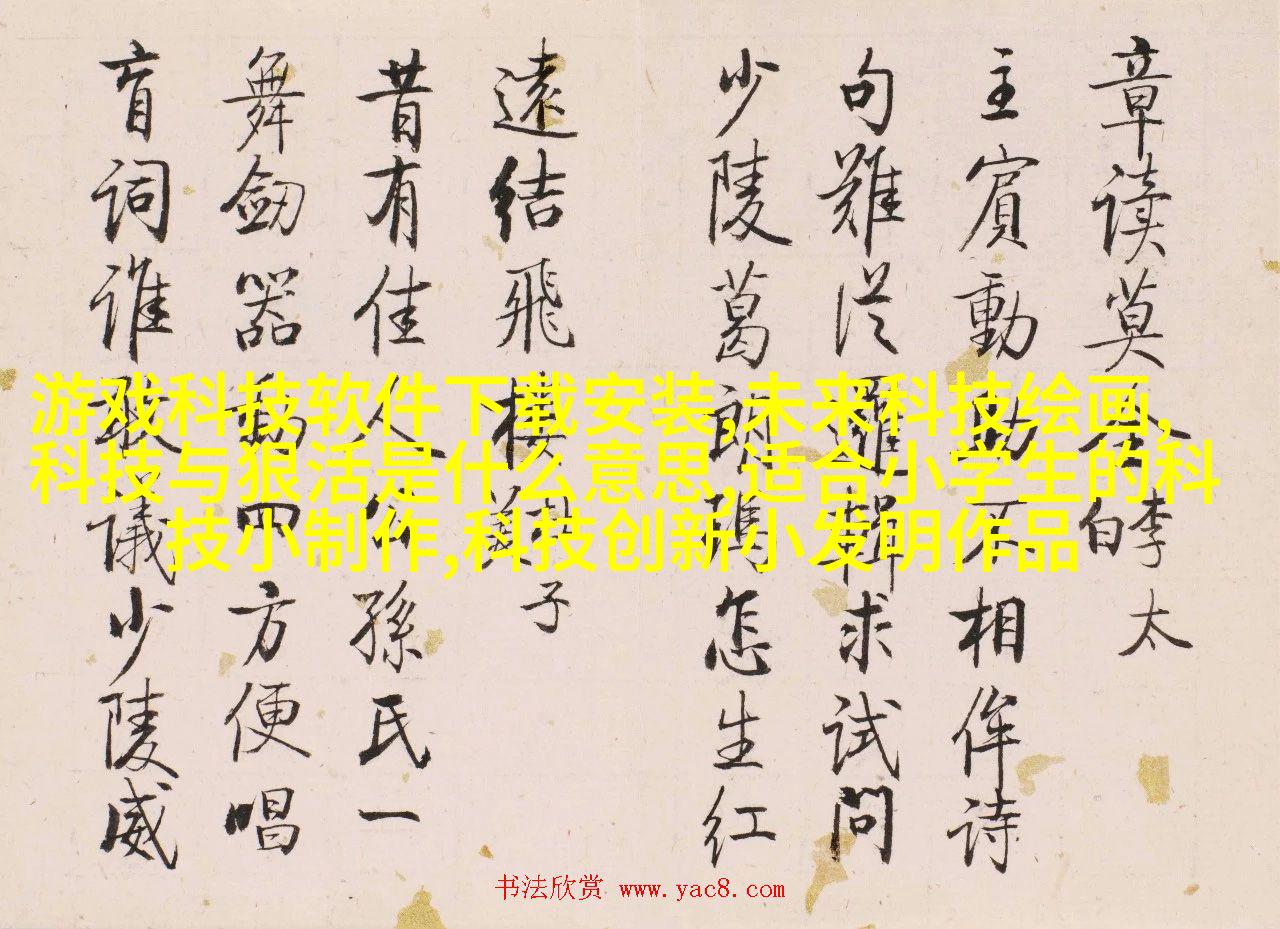 章读莫李太
白
主賓動助不相侔诗
句難從羅輯求试問
少陵葛朗瑪怎生红
遠结飛樓
子
昔有佳人公孫氏一
舞劒器動四方便唱
盲词谁敢議少陵威
游戏科技软件下载安装,未来科技绘画,
科技与狠活是什么意思,适合小学生的科
技小制作,科技创新小发明作品
书法欣赏 www.yac8.com